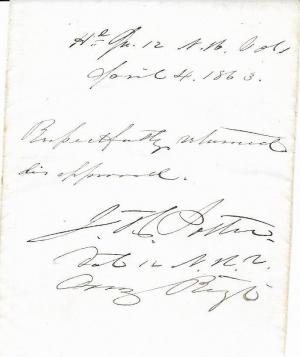 Hd Qr. 12 N.H. Vols
April 4. 1863.
Respectfully returned
disapproved.
J. H. Potter
Col 12 N.H.V.
Comg Regt